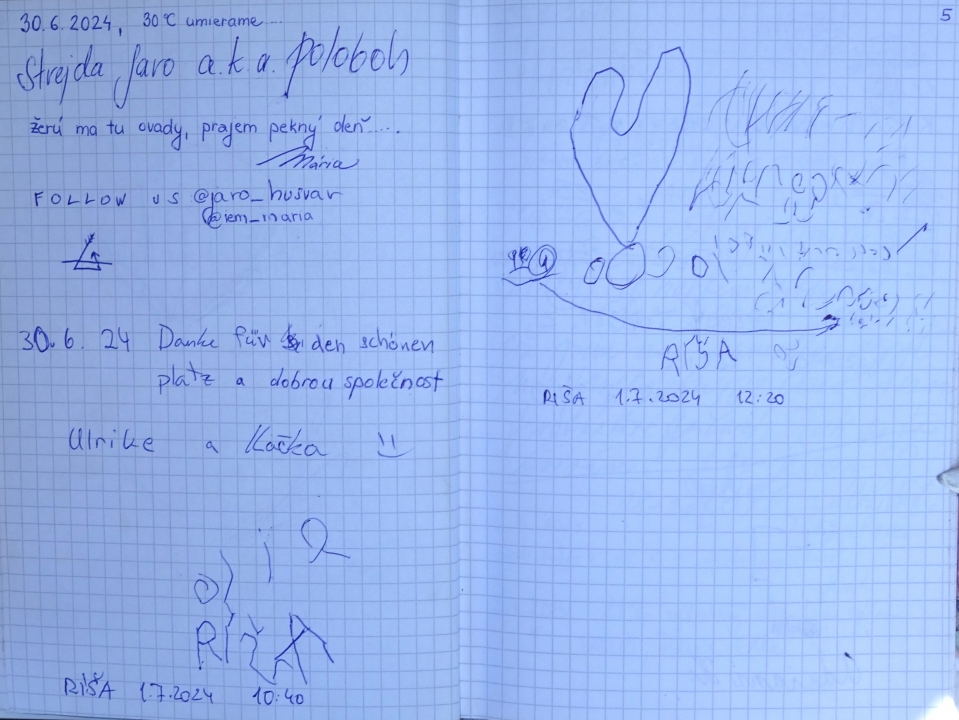 30.6.2024, 30°C umierame...
Strejda Jaro a.k.a. poloboh
žerú ma tu ovady, prajem pekný deň....
Mária
FOLLOW US @jaro_husvar
@iem_maria
30.6.24 Danke für den schönen
platz a dobrou společnost
Ulrike a Kačka
RÍŽA
RIŠA 1.7.2024 10:40
5
RÍŠA
RIŠA 1.7.2024 12:20